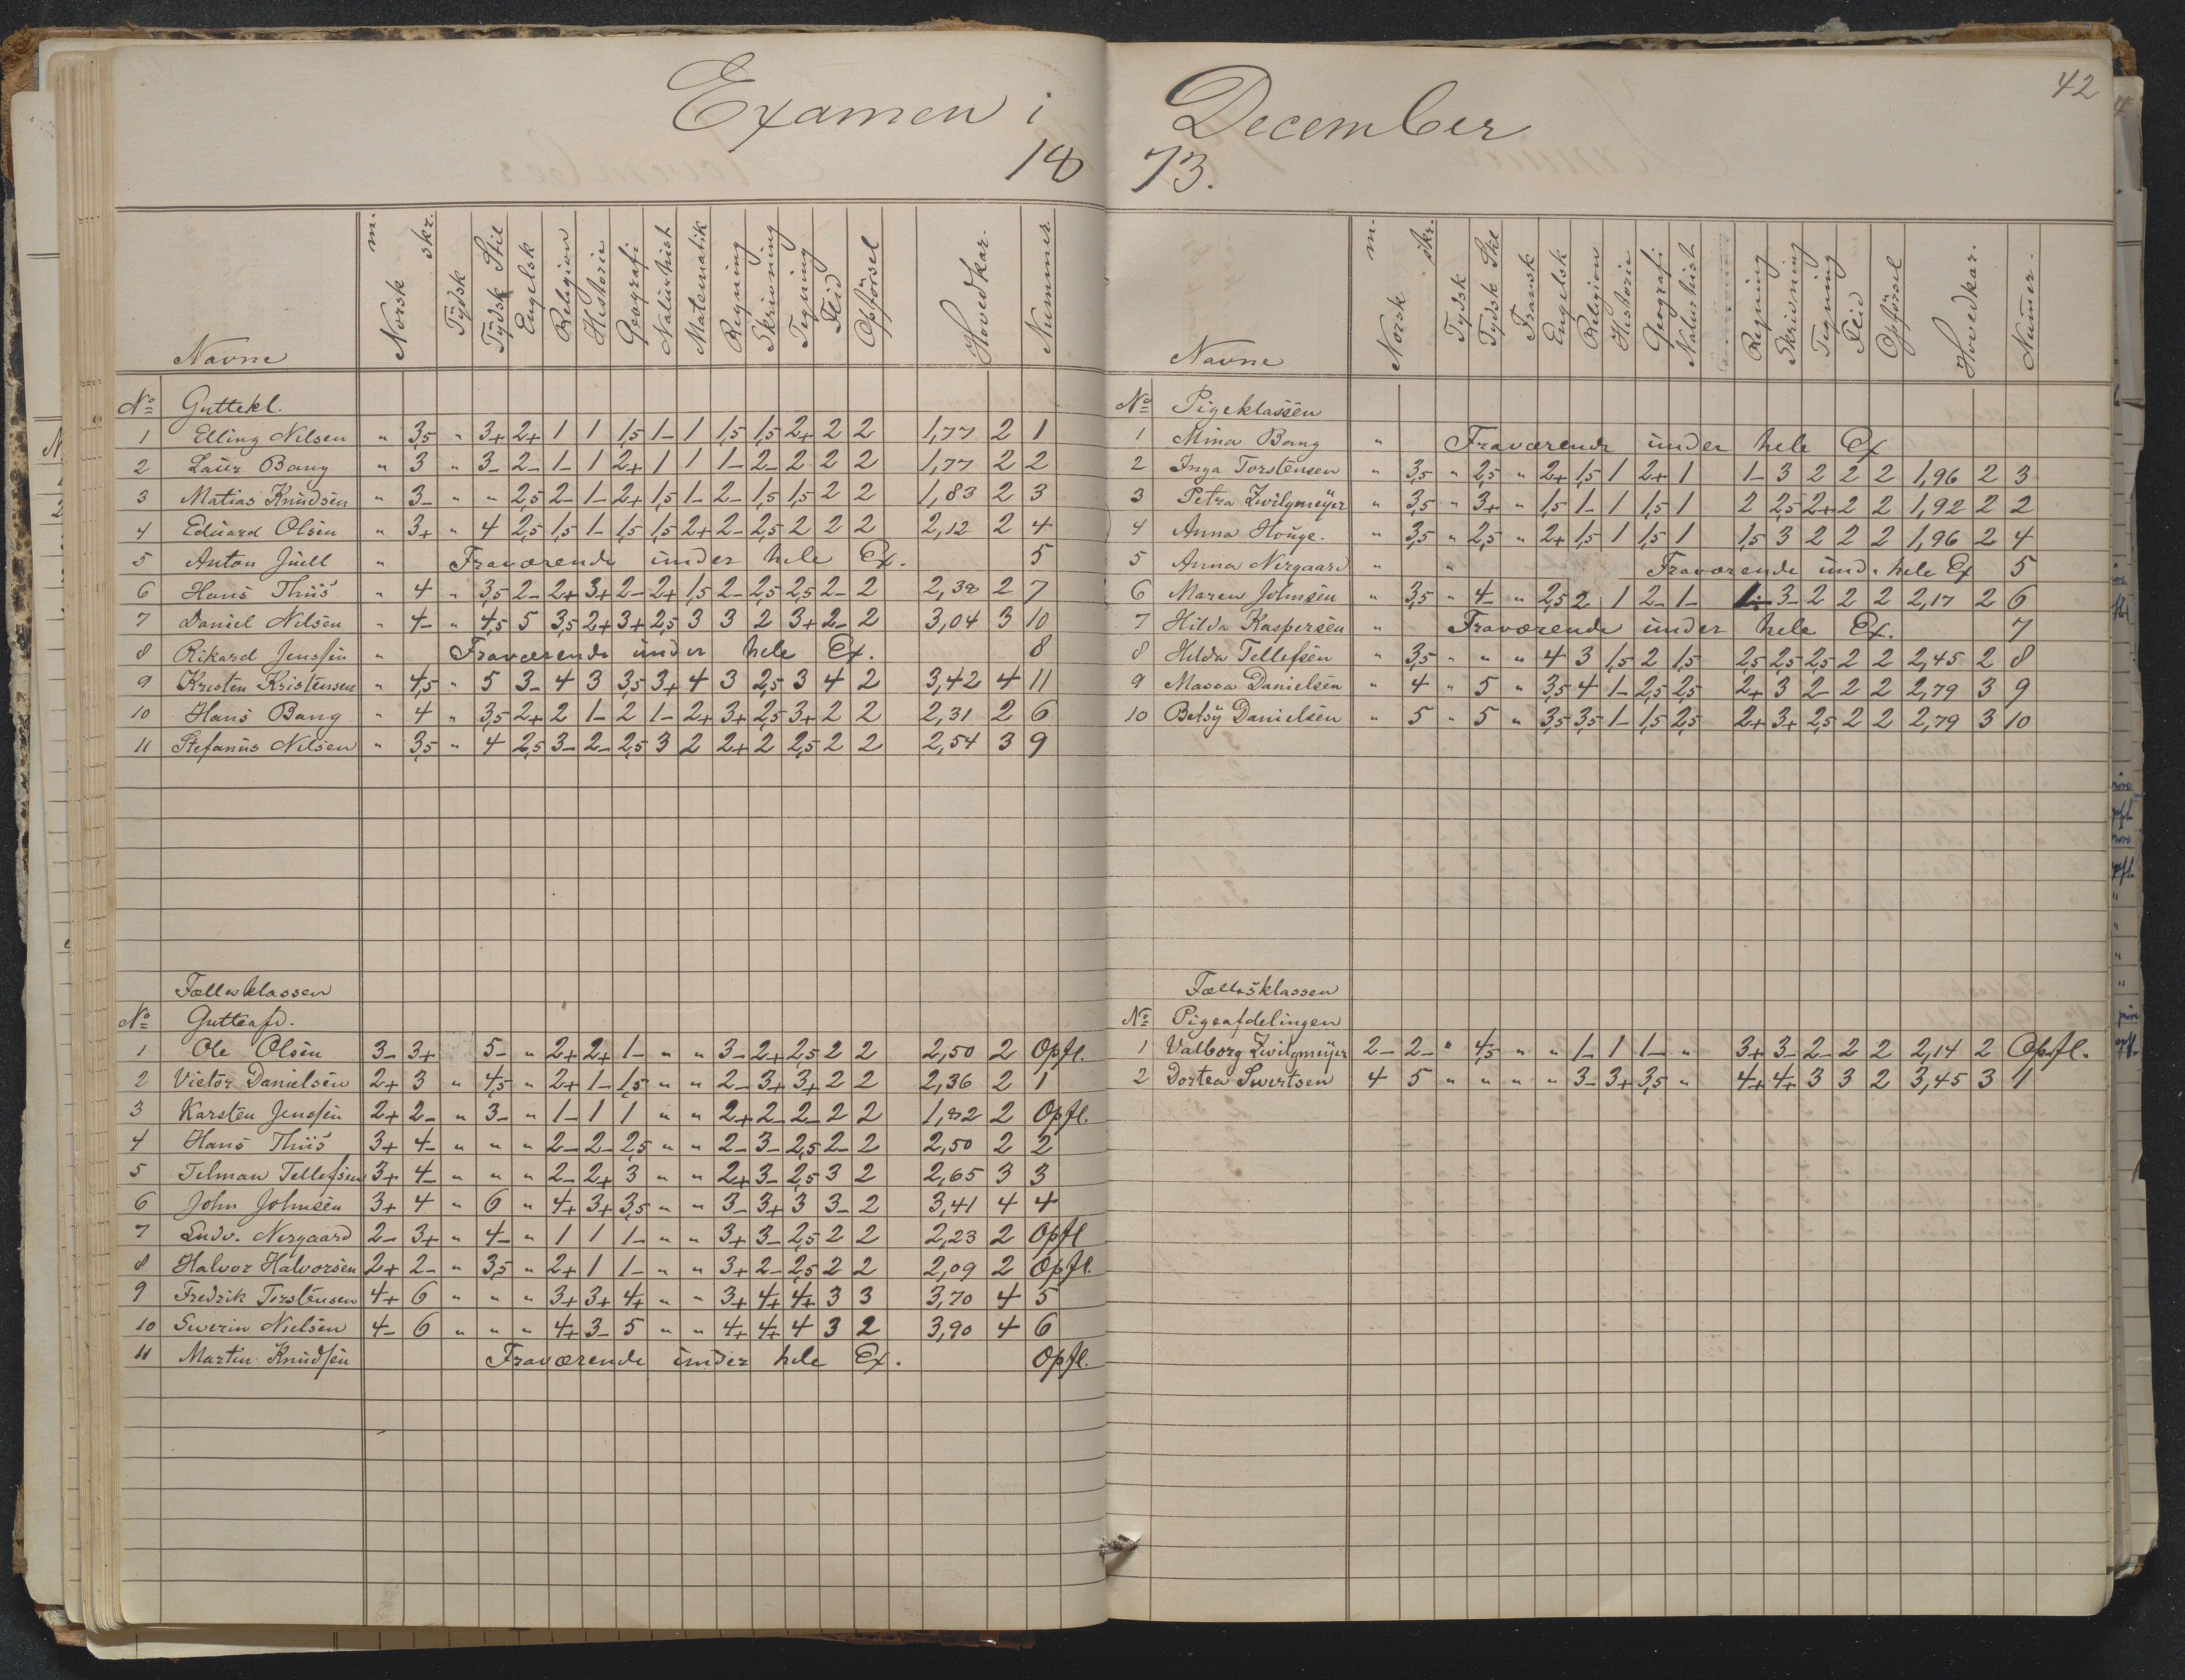 Examen i
18
Navne | Norsk m. | skr. | Tÿdsk | Tÿdsk Stil | Engelsk | Religion | Historie | Geografi | Naturhist | Matematik | Regning | Skrivning | Tegning | Flid | Opførsel | Hovedkar. | Nummer
No Guttekl.
1 Elling Nilsen " 3,5 " 3+ 2+ 1 1 1,5 1- 1 1,5 1,5 2+ 2 2 1,77 2 1
2 Laur Bang " 3 " 3- 2- 1- 1 2+ 1 1 1- 2- 2 2 2 1,77 2 2
3 Matias Knudsen " 3- " " 2,5 2- 1- 2+ 1,5 1- 2- 1,5 1,5 2 2 1,83 2 3
4 Eduard Olsen " 3+ " 4 2,5 1,5 1- 1,5 1,5 2+ 2- 2,5 2 2 2 2,12 2 4
5 Anton Juell " Fraværende under hele Ex. 5
6 Hans Thiis " 4 " 3,5 2- 2+ 3+ 2- 2+ 1,5 2- 2,5 2,5 2- 2 2,38 2 7
7 Daniel Nilsen " 4- " 4,5 5 3,5 2+ 3+ 2,5 3 3 2 3+ 2- 2 3,04 3 10
8 Rikard Jenssen " Fraværende under hele Ex. 8
9 Kristen Kristensen " 4,5 " 5 3- 4 3 3,5 3+ 4 3 2,5 3 4 2 3,42 4 11
10 Hans Bang " 4 " 3,5 2+ 2 1- 2 1- 2+ 3+ 2,5 3+ 2 2 2,31 2 6
11 Stefanus Nilsen " 3,5 " 4 2,5 3- 2- 2,5 3 2 2+ 2 2,5 2 2 2,54 3 9
Fællesklassen
No Gutteafd.
1 Ole Olsen 3- 3+ 5- " 2+ 2+ 1- " " 3- 2+ 2,5 2 2 2,50 2 Opfl.
2 Victor Danielsen 2+ 3 " 4,5 " 2+ 1- 1,5 " " 2- 3+ 3+ 2 2 2,36 2 1
3 Karsten Jenssen 2+ 2- " 3- " 1- 1 1 " " 2+ 2- 2- 2 2 1,82 2 Opfl.
4 Hans Thiis 3+ 4- " " " 2- 2- 2,5 " " 2- 3- 2,5 2- 2 2,50 2 2
5 Telman Tellefsen 3+ 4- " " " 2- 2+ 3 " " 2+ 3- 2,5 3 2 2,65 3 3
6 John Johnsen 3+ 4 " 6 " 4+ 3+ 3,5 " " 3- 3+ 3 3- 2 3,41 4 4
7 Ludv. Nergaard 2- 3+ " 4- " 1 1 1- " " 3+ 3- 2,5 2 2 2,23 2 Opfl
8 Halvor Halvorsen 2+ 2- " 3,5 " 2+ 1 1- " " 3+ 2- 2,5 2 2 2,09 2 Opfl.
9 Fredrik Torstensen 4+ 6 " " " 3+ 3+ 4+ " " 3+ 4+ 4+ 3 3 3,70 4 5
10 Swerin Nielsen 4- 6 " " " 4+ 3- 5 " " 4+ 4+ 4 3 2 3,90 4 6
11 Martin Knudsen Fraværende under hele Ex. Opfl.
42
December
73.
Navne | Norsk m. | skr. | Tydsk | Tydsk Stil | Fransk | Engelsk | Religion | Historie | Geografi | Naturhist | Regning | Skrivning | Tegning | Flid | Opførsel | Hovedkar. | Numer.
No Pigeklassen
1 Mina Bang " Fraværende under hele Ex
2 Inga Torstensen " 3,5 " 2,5 " 2+ 1,5 1 2+ 1 1- 3 2 2 2 1,96 2 3
3 Petra Zwilgmeÿer " 3,5 " 3+ " 1,5 1- 1 1,5 1 2 2,5 2+ 2 2 1,92 2 2
4 Anna Houge. " 3,5 " 2,5 " 2+ 1,5 1 1,5 1 1,5 3 2 2 2 1,96 2 4
5 Anna Nergaard " " Fraværende und. hele Ex 5
6 Maren Johnsen " 3,5 " 4- " 2,5 2 1 2- 1- 1- 3- 2 2 2 2,17 2 6
7 Hilda Kaspersen " Fraværende under hele Ex. 7
8 Helda Tellefsen " 3,5 " " " 4 3 1,5 2 1,5 2,5 2,5 2,5 2 2 2,45 2 8
9 Massa Danielsen " 4 " 5 " 3,5 4 1- 2,5 2,5 2+ 3 2- 2 2 2,79 3 9
10 Betsÿ Danielsen " 5 " 5 " 3,5 3,5 1- 1,5 2,5 2+ 3+ 2,5 2 2 2,79 3 10
Fællesklassen
No Pigeafdelingen
1 Valborg Zwilgmeÿer 2- 2- " 4,5 " " 1- 1 1- " 3+ 3- 2- 2 2 2,14 2 Opfl.
2 Dortea Swertsen 4 5 " " " " 3- 3+ 3,5 " 4+ 4+ 3 3 2 3,45 3 1